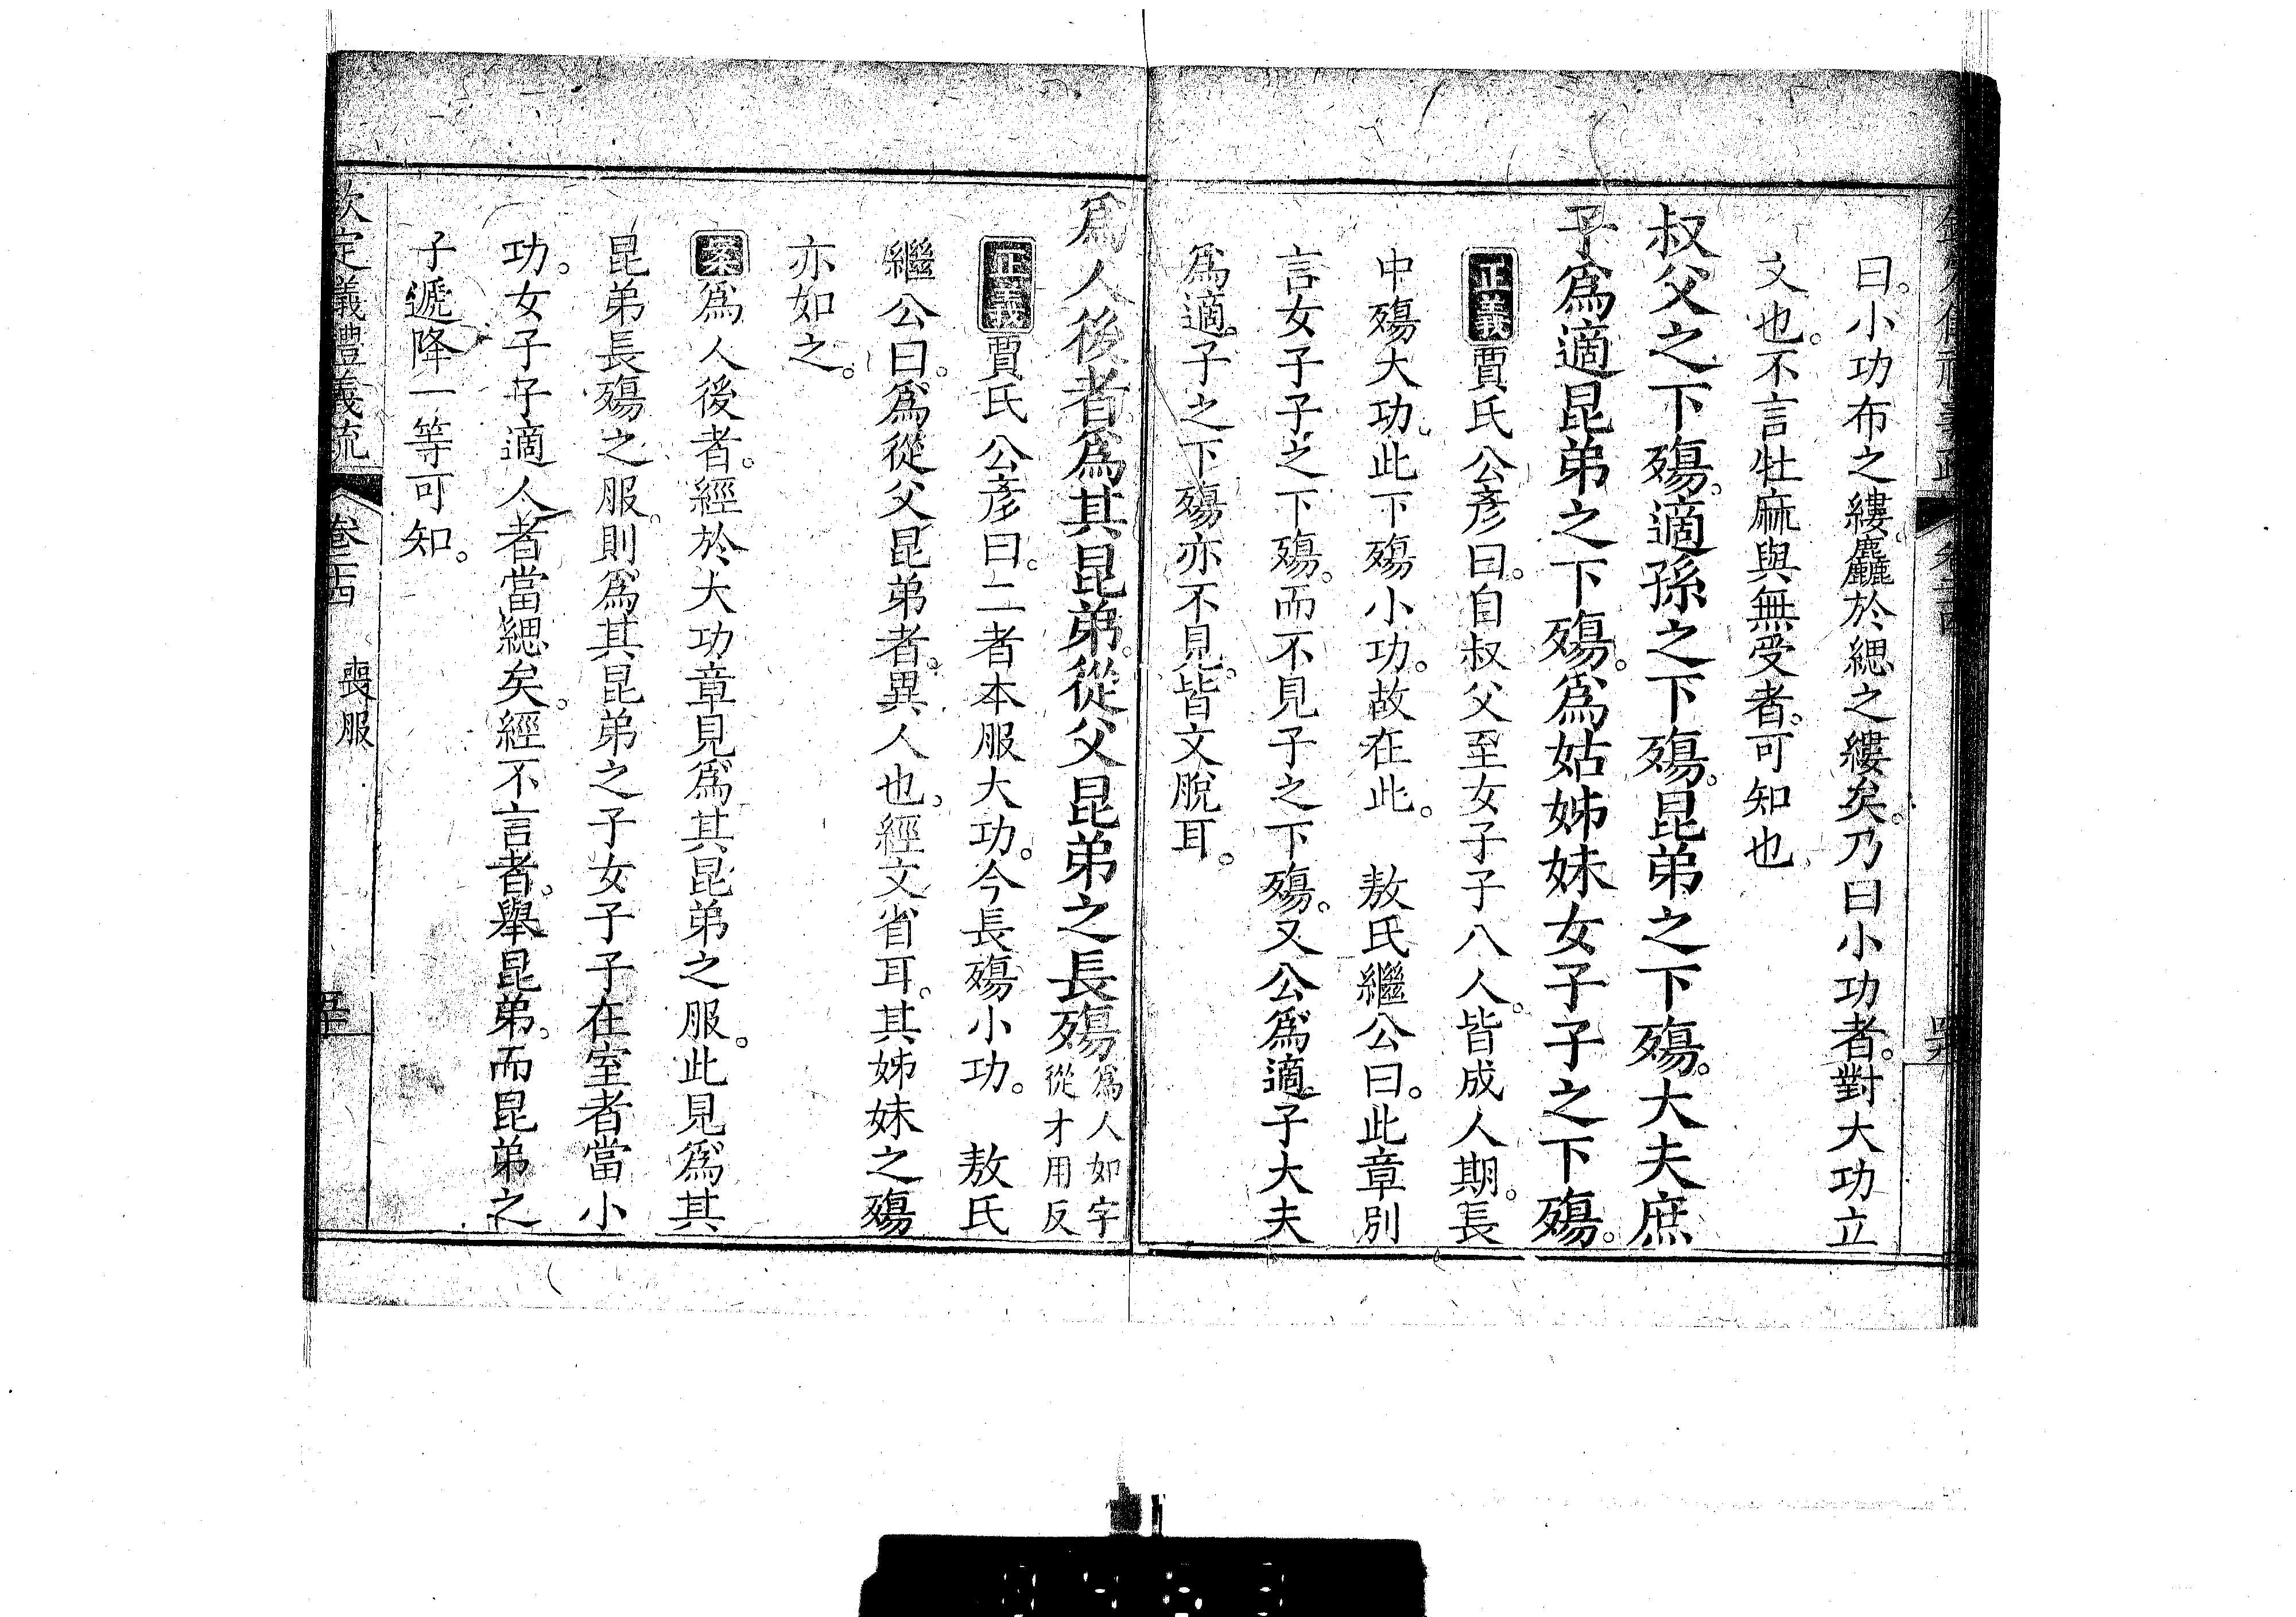 曰。小功布之縷。麤於緦之縷矣。乃曰小功者。對大功立
文也。不言牡麻與無受者。可知也
叔父之下殤。適孫之下殤。昆弟之下殤。大夫庶
子爲適昆弟之下殤。爲姑姊妹女子子之下殤。
正義賈氏公彥曰。自叔父至女子子八人。皆成人期。長
中殤大功。此下殤小功。故在此。 敖氏繼公曰。此章別
言女子子之下殤。而不見子之下殤。又公爲適子大夫
爲適子之下殤亦不見。皆文脫耳。
爲人後者爲其昆弟。從父昆弟之長殤爲人如字
從才用反
正義賈氏公彥曰。二者本服大功。今長殤小功。 敖氏
繼公曰。爲從父昆弟者。異人也。經文省耳。其姊妹之殤
亦如之。
案爲人後者。經於大功章見爲其昆弟之服。此見爲其
昆弟長殤之服。則爲其昆弟之子女子子在室者當小
功。女子子適人者當緦矣。經不言者。舉昆弟。而昆弟之
子遞降一等可知。
欽定儀禮義疏 卷二十四 喪服